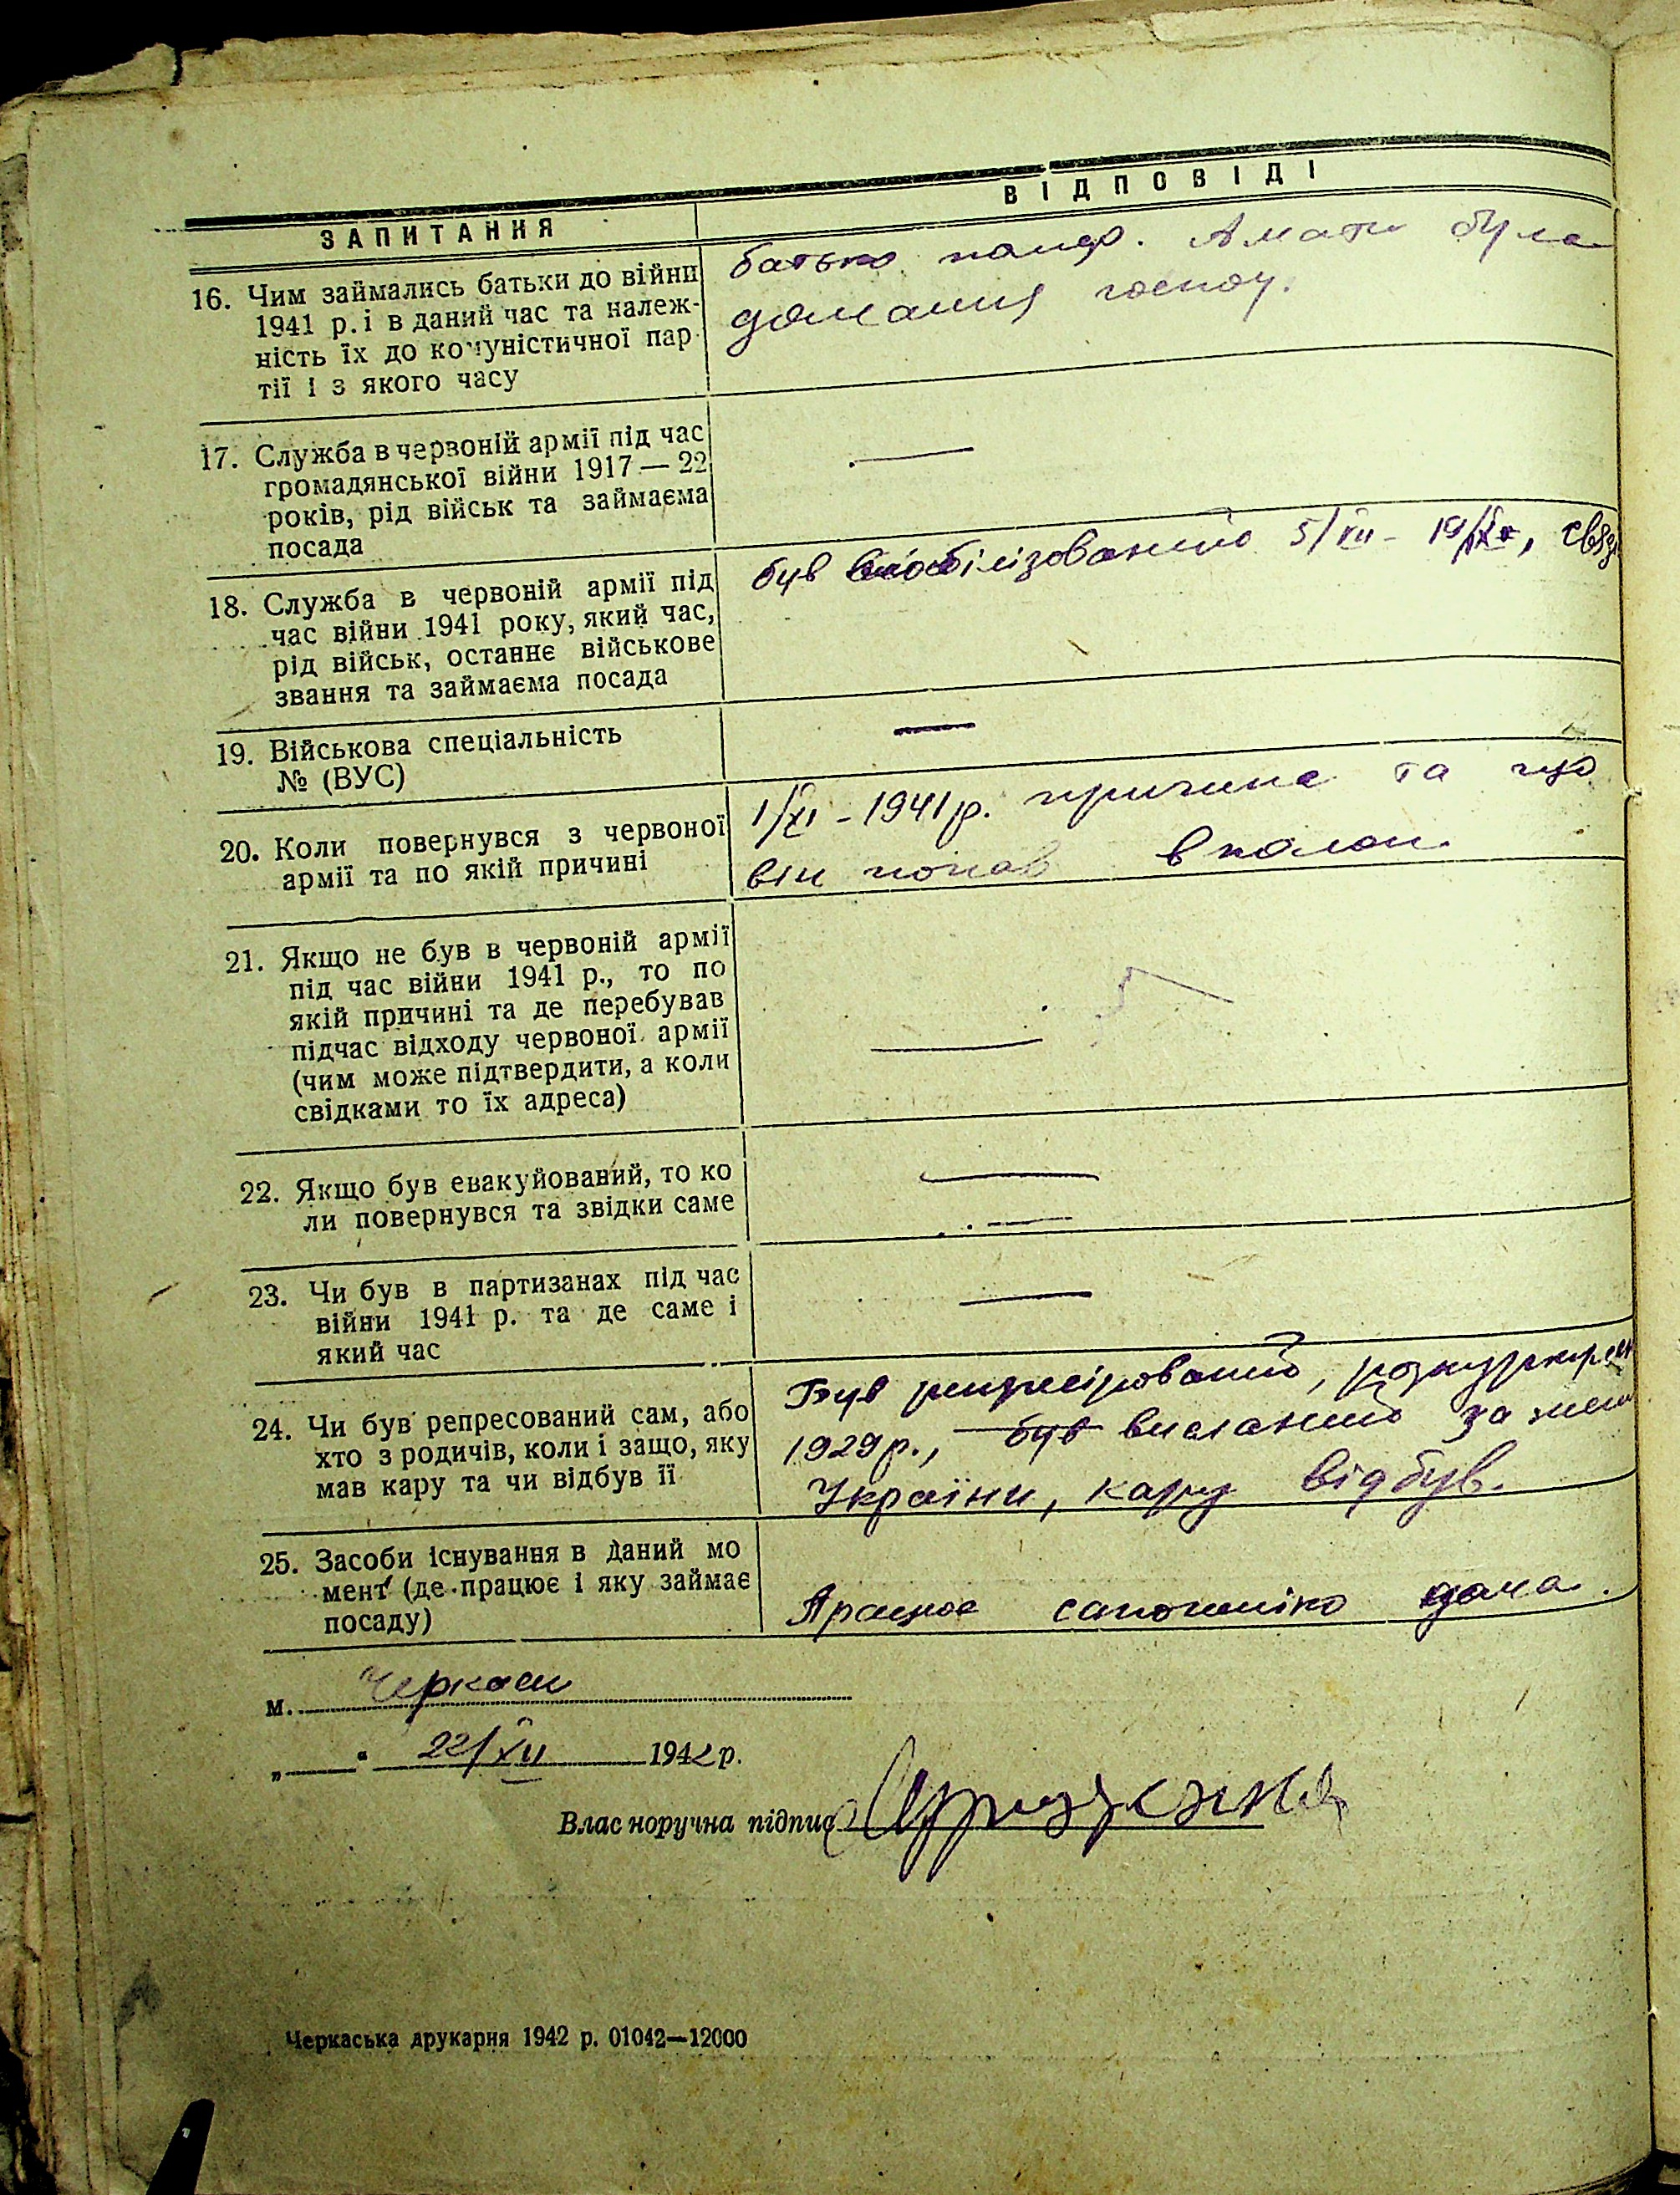 ЗАПИТАННЯ
ВІДПОВІДІ
16. Чим займались батьки до війни
1941 р. і в даний час та належ-
ність їх до комуністичної пар-
тії і з якого часу
батько помер. А мати була
домашня господ.
17. Служба в червоній армії під час
громадянської війни 1917 — 22
років, рід військ та займаєма
посада
—
18. Служба в червоній армії під
час війни 1941 року, який час,
рід військ, останнє військове
звання та займаєма посада
був мобілізований 5/VII - 19/IX,
19. Військова спеціальність
№ (ВУС)
—
20. Коли повернувся з червоної
армії та по якій причині
1/XI - 1941 р. причина та що
він попав в полон.
21. Якщо не був в червоній армії
під час війни 1941 р., то по
якій причині та де перебував
підчас відходу червоної армії
(чим може підтвердити, а коли
свідками то їх адреса)
—
22. Якщо був евакуйований, то ко
ли повернувся та звідки саме
—
23. Чи був в партизанах під час
війни 1941 р. та де саме і
який час
—
24. Чи був репресований сам, або
хто з родичів, коли і защо, яку
мав кару та чи відбув її
Був репресірований,
1929 р., був висланий за
України, кару відбув.
25. Засоби існування в даний мо
мент (де працює і яку займає
посаду)
Працює сапожніком дома.
м. Черкаси
„ " 22/XII 1942 р.
Власноручна підпис
Черкаська друкарня 1942 р. 01042—12000